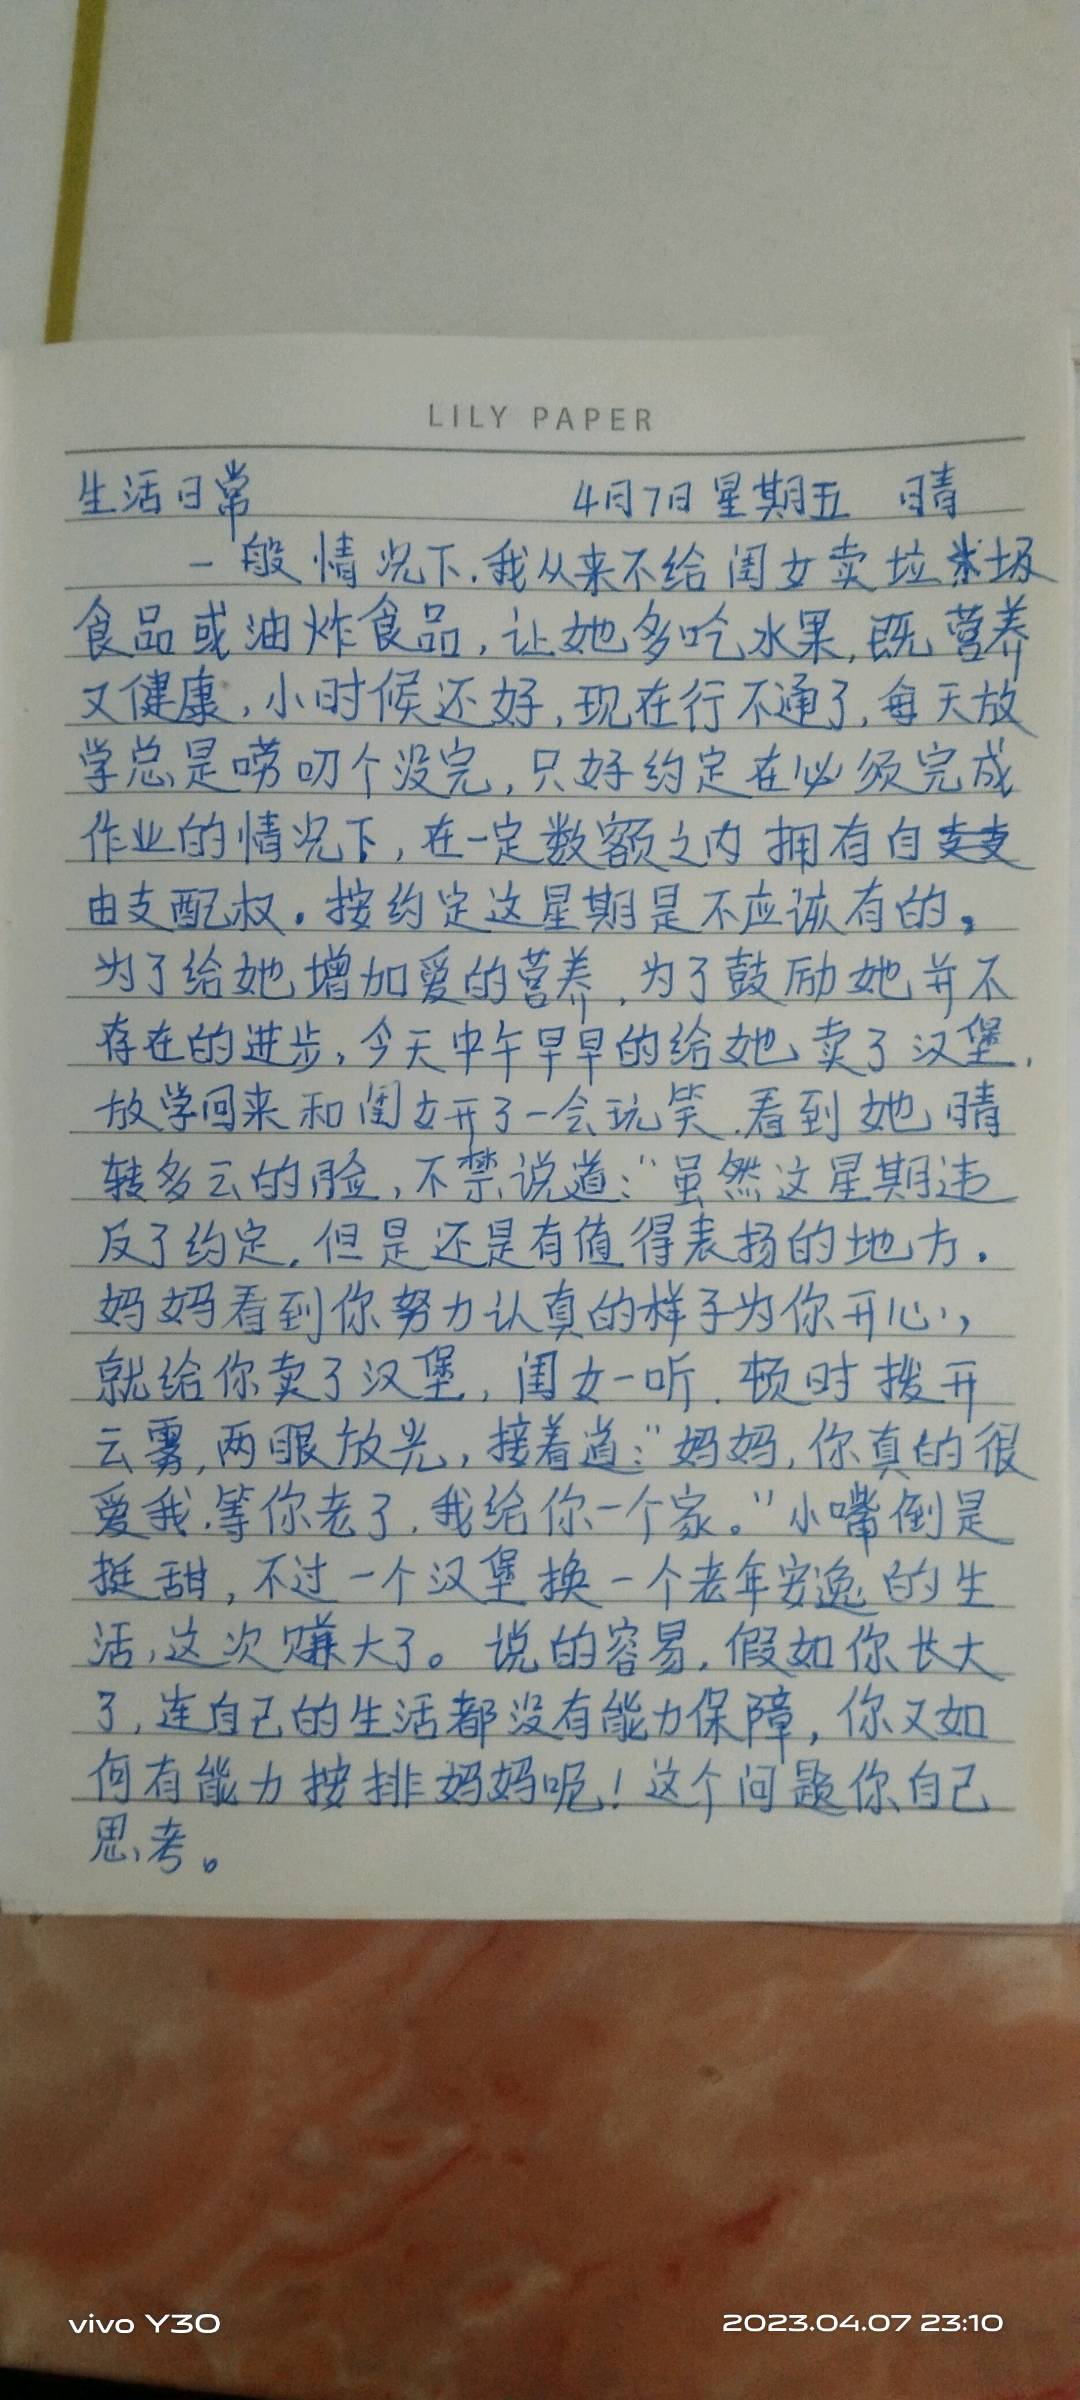 LILY PAPER
生活日常 4月7日星期五 晴
一般情况下.我从来不给闺女卖垃圾
食品或油炸食品,让她多吃水果,既营养
又健康,小时候还好,现在行不通了,每天放
学总是唠叨个没完,只好约定在必须完成
作业的情况下,在一定数额之内拥有自
由支配权.按约定这星期是不应该有的。
为了给她增加爱的营养,为了鼓励她并不
存在的进步,今天中午早早的给她卖了汉堡,
放学回来和闺女开了一会玩笑.看到她晴
转多云的脸,不禁说道:“虽然这星期违
反了约定,但是还是有值得表扬的地方.
妈妈看到你努力认真的样子为你开心,
就给你卖了汉堡,闺女一听.顿时拨开
云雾,两眼放光,接着道:“妈妈,你真的很
爱我.等你老了.我给你一个家。”小嘴倒是
挺甜,不过一个汉堡换一个老年安逸的生
活,这次赚大了。说的容易,假如你长大
了,连自己的生活都没有能力保障,你又如
何有能力按排妈妈呢!这个问题你自己
思考。
vivo Y30 2023.04.07 23:10